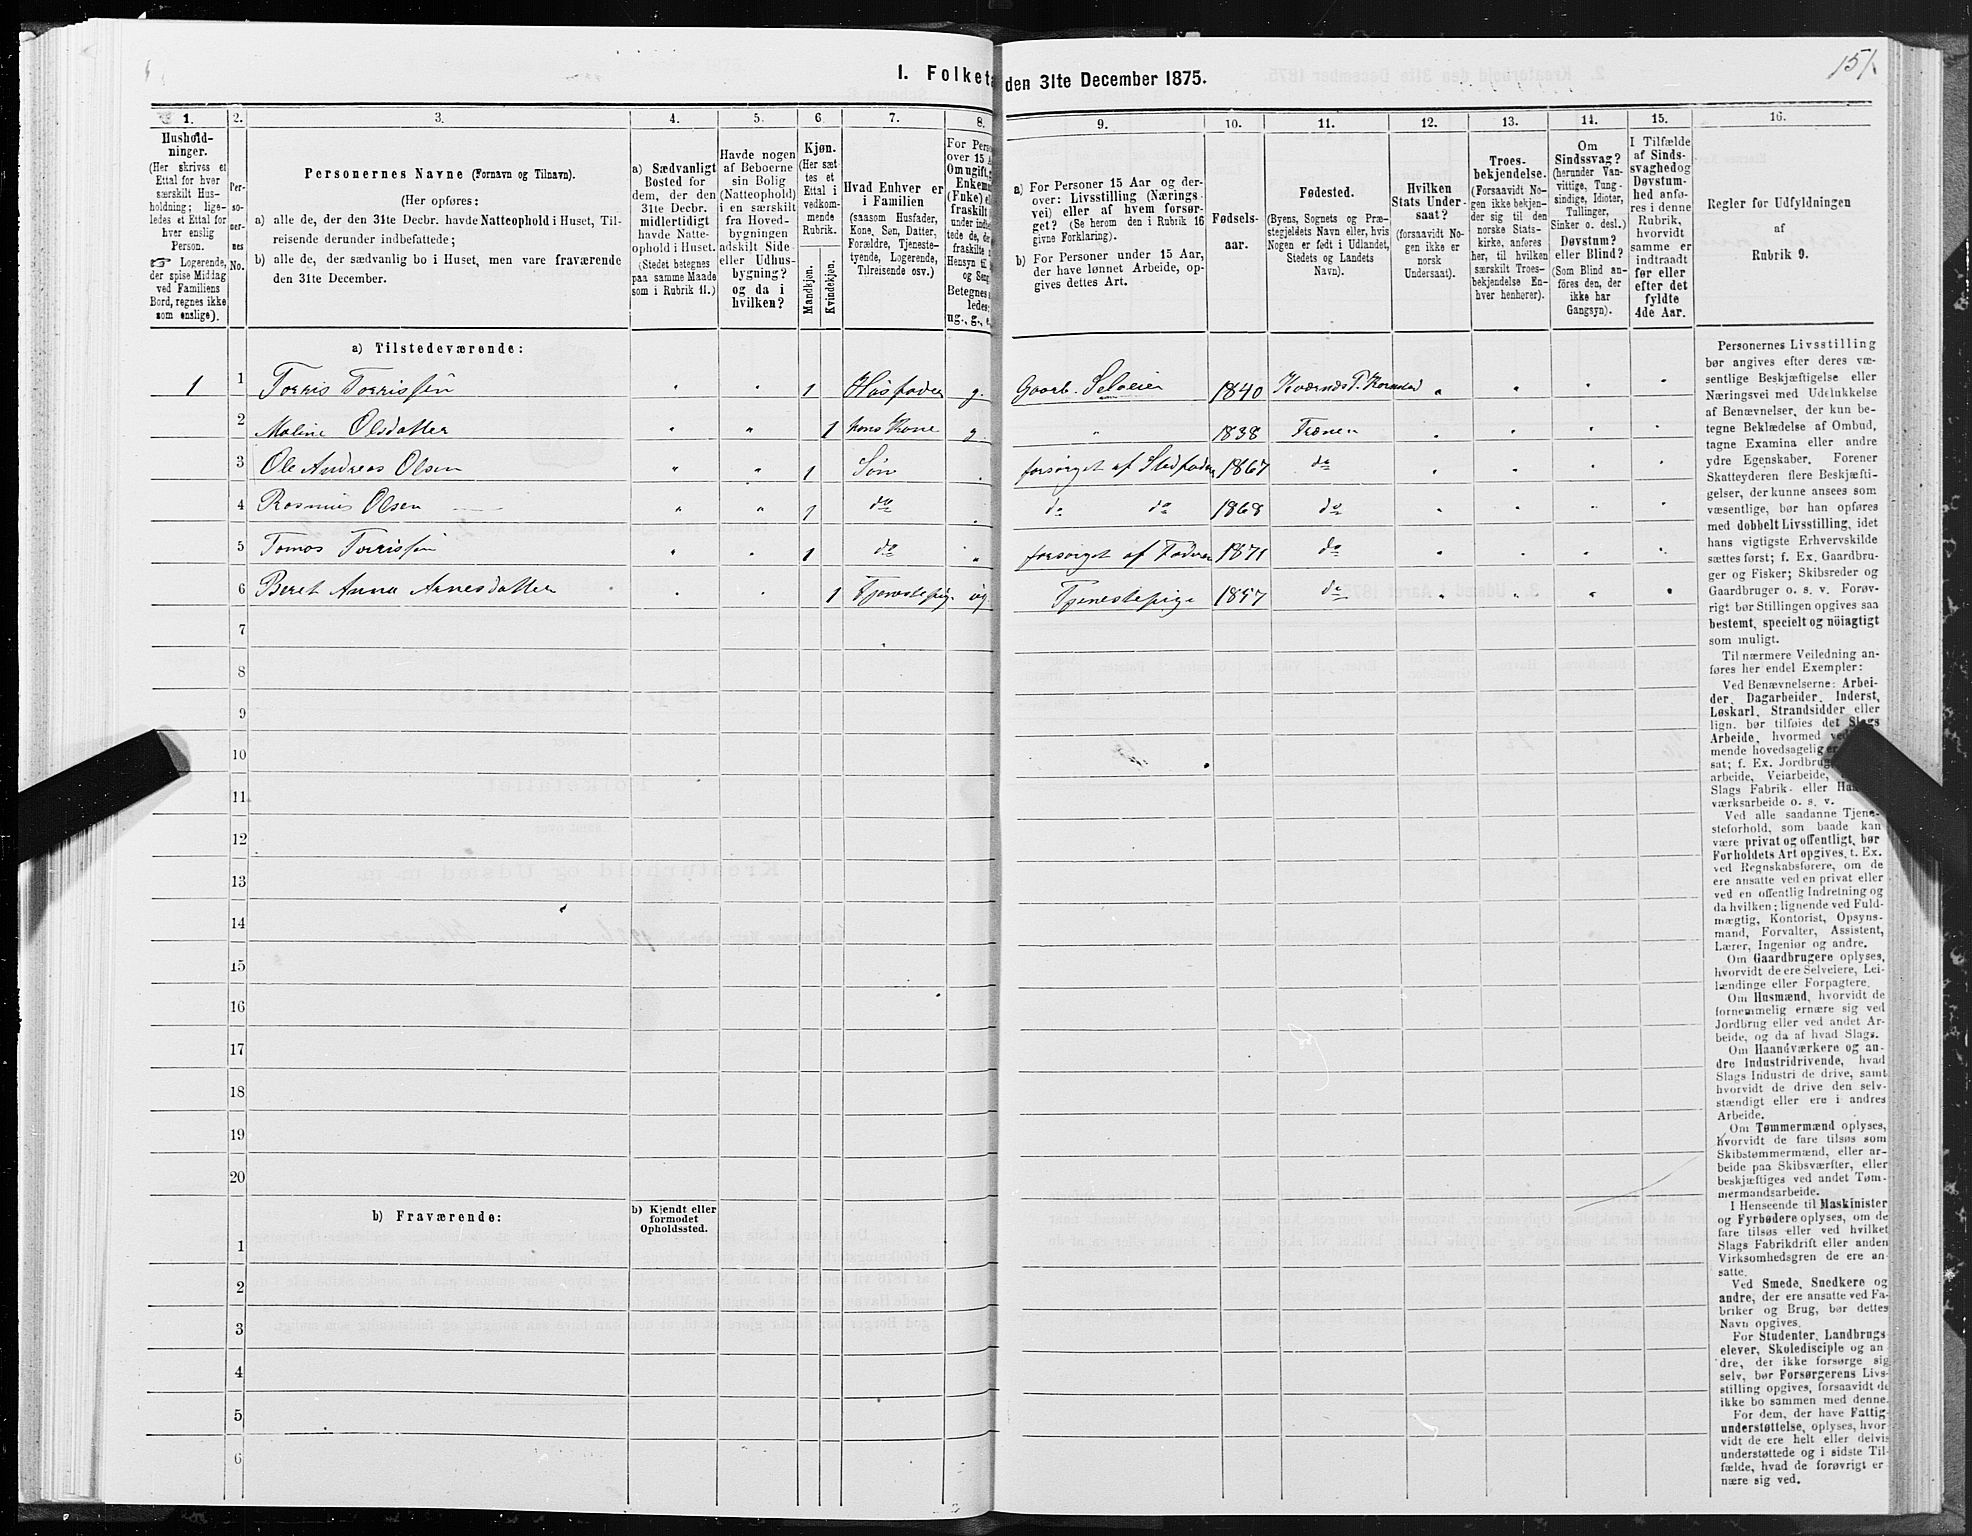 151.
I. Folketa
den 31te December 1875.
1. 2. 3. 4. 5. 6 7. 8. 9. 10. 11. 12. 13. 14. 15. 16.
Hushold-
ninger.
(Her skrives et
Ettal for hver
særskilt Hus-
holdning; lige-
ledes et Ettal for
hver enslig
Person.
☞ Logerende,
der spise Middag
ved Familiens
Bord, regnes ikke
som enslige).
Per-
so-
ner-
nes
No.
Personernes Navne (Fornavn og Tilnavn).
(Her opføres:
a) alle de, der den 31te Decbr. havde Natteophold i Huset, Til-
reisende derunder indbefattede;
b) alle de, der sædvanlig bo i Huset, men vare fraværende
den 31te December.
a) Sædvanligt
Bosted for
dem, der den
31te Decbr.
midlertidigt
havde Natte-
ophold i Huset.
(Stedet betegnes
paa samme Maade
som i Rubrik 11.)
Havde nogen
af Beboerne
sin Bolig
(Natteophold)
i en særskilt
fra Hoved-
bygningen
adskilt Side-
eller Udhus-
bygning?
og da i
hvilken?
Kjøn.
(Her sæt-
tes et
Ettal i
vedkom-
mende
Rubrik.
Mandkjøn.
Kvindekjøn.
Hvad Enhver er
i Familien
(saasom Husfader,
Kone, Søn, Datter,
Forældre, Tjeneste-
tyende, Logerende,
Tilreisende osv.)
For Perso
over 15 A
Om ugift,
Enkem
(Enke) e
fraskilt
under indb
tede de, de
fraskilte
Hensyn til
og Seng
Betegnes s
ledes:
ug., g., e.
a) For Personer 15 Aar og der-
over: Livsstilling (Nærings-
vei) eller af hvem forsør-
get? (Se herom den i Rubrik 16
givne Forklaring).
b) For Personer under 15 Aar,
der have lønnet Arbeide, op-
gives dettes Art.
Fødsels-
aar.
Fødested.
(Byens, Sognets og Præ-
stegjeldets Navn eller, hvis
Nogen er født i Udlandet,
Stedets og Landets
Navn).
Hvilken
Stats Under-
saat?
(forsaavidt No-
gen ikke er
norsk
Undersaat).
Troes-
bekjendelse.
(Forsaavidt No-
gen ikke bekjen-
der sig til den
norske Stats-
kirke, anføres
her, til hvilken
særskilt Troes-
bekjendelse En-
hver henhører).
Om
Sindssvag?
(herunder Van-
vittige, Tung-
sindige, Idioter,
Tullinger,
Sinker o. desl.)
Døvstum?
eller Blind?
(Som Blind an-
føres den, der
ikke har
Gangsyn).
I Tilfælde
af Sinds-
svaghed og
Døvstum-
hed anfø-
res i denne
Rubrik,
hvorvidt
samme er
indtraadt
før eller
efter det
fyldte
4de Aar.
Regler for Udfyldningen
af
Rubrik 9.
a) Tilstedeværende:
1 1 Torris Torrissen " " 1 Husfader g. Gaarb. Selveier 1840 Kværnæs P. Kornstad " " " "
2 Maline Olsdatter " " 1 hans Kone g " 1838 Frænen " " " "
3 Ole Andreas Olsen " " 1 Søn . forsørget af Stedfader 1867 do " " " "
4 Rasmus Olsen " " 1 do . do do 1868 do " " " "
5 Tomas Torrissen " " 1 do " forsørget af Faderen 1871 do " " " "
6 Beret Anna Arnesdatter " " 1 Tjenestepige ug Tjenestepige 1857 do " " " "
7
8
9
10
11
12
13
14
15
16
17
18
19
20
b) Fraværende:
b) Kjendt eller
formodet
Opholdssted.
1
2
3
4
5
6
Personernes Livsstilling
bør angives efter deres væ-
sentlige Beskjæftigelse eller
Næringsvei med Udelukkelse
af Benævnelser, der kun be-
tegne Beklædelse af Ombud,
tagne Examina eller andre
ydre Egenskaber. Forener
Skatteyderen flere Beskjæfti-
gelser, der kunne ansees som
væsentlige, bør han opføres
med dobbelt Livsstilling, idet
hans vigtigste Erhvervskilde
sættes først; f. Ex. Gaardbru-
ger og Fisker; Skibsreder og
Gaardbruger o. s. v. Forøv-
rigt bør Stillingen opgives saa
bestemt, specielt og nöiagtigt
som muligt.
Til nærmere Veiledning an-
føres her endel Exempler:
Ved Benævnelserne: Arbei-
der, Dagarbeider, Inderst,
Løskarl, Strandsidder eller
lign. bør tilføies det Slags
Arbeide, hvormed ved
mende hovedsagelig er
sat; f. Ex. Jordbrug
arbeide, Veiarbeide,
Slags Fabrik- eller Haa
værksarbeide o. s. v.
Ved alle saadanne Tjene-
steforhold, som baade kan
være privat og offentligt, bør
Forholdets Art opgives, t. Ex.
ved Regnskabsførere, om de
ere ansatte ved en privat eller
ved en offentlig Indretning og
da hvilken; lignende ved Fuld-
mægtig, Kontorist, Opsyns-
mand, Forvalter, Assistent,
Lærer, Ingeniør og andre.
Om Gaardbrugere oplyses,
hvorvidt de ere Selveiere, Lei-
lændinge eller Forpagtere.
Om Husmænd, hvorvidt de
fornemmelig ernære sig ved
Jordbrug eller ved andet Ar-
beide, og da af hvad Slags.
Om Haandværkere og an-
dre Industridrivende, hvad
Slags Industri de drive, samt
hvorvidt de drive den selv-
stændigt eller ere i andres
Arbeide.
Om Tømmermænd oplyses,
hvorvidt de fare tilsøs som
Skibstømmermænd, eller ar-
beide paa Skibsværfter, eller
beskjæftiges ved andet Tøm-
mermandsarbeide.
I Henseende til Maskinister
og Fyrbødere oplyses, om de
fare tilsøs eller ved hvilket
Slags Fabrikdrift eller anden
Virksomhedsgren de ere an-
satte.
Ved Smede, Snedkere og
andre, der ere ansatte ved Fa-
briker og Brug, bør dettes
Navn opgives.
For Studenter, Landbrugs
elever, Skoledisciple og an
dre, der ikke forsørge sig
selv, bør Forsørgerens Livs-
stilling opgives, forsaavidt de
ikke bo sammen med denne.
For dem, der have Fattig-
understøttelse, oplyses, hvor-
vidt de ere helt eller delvis
understøttede og i sidste Til-
fælde, hvad de forøvrigt er
nære sig ved.